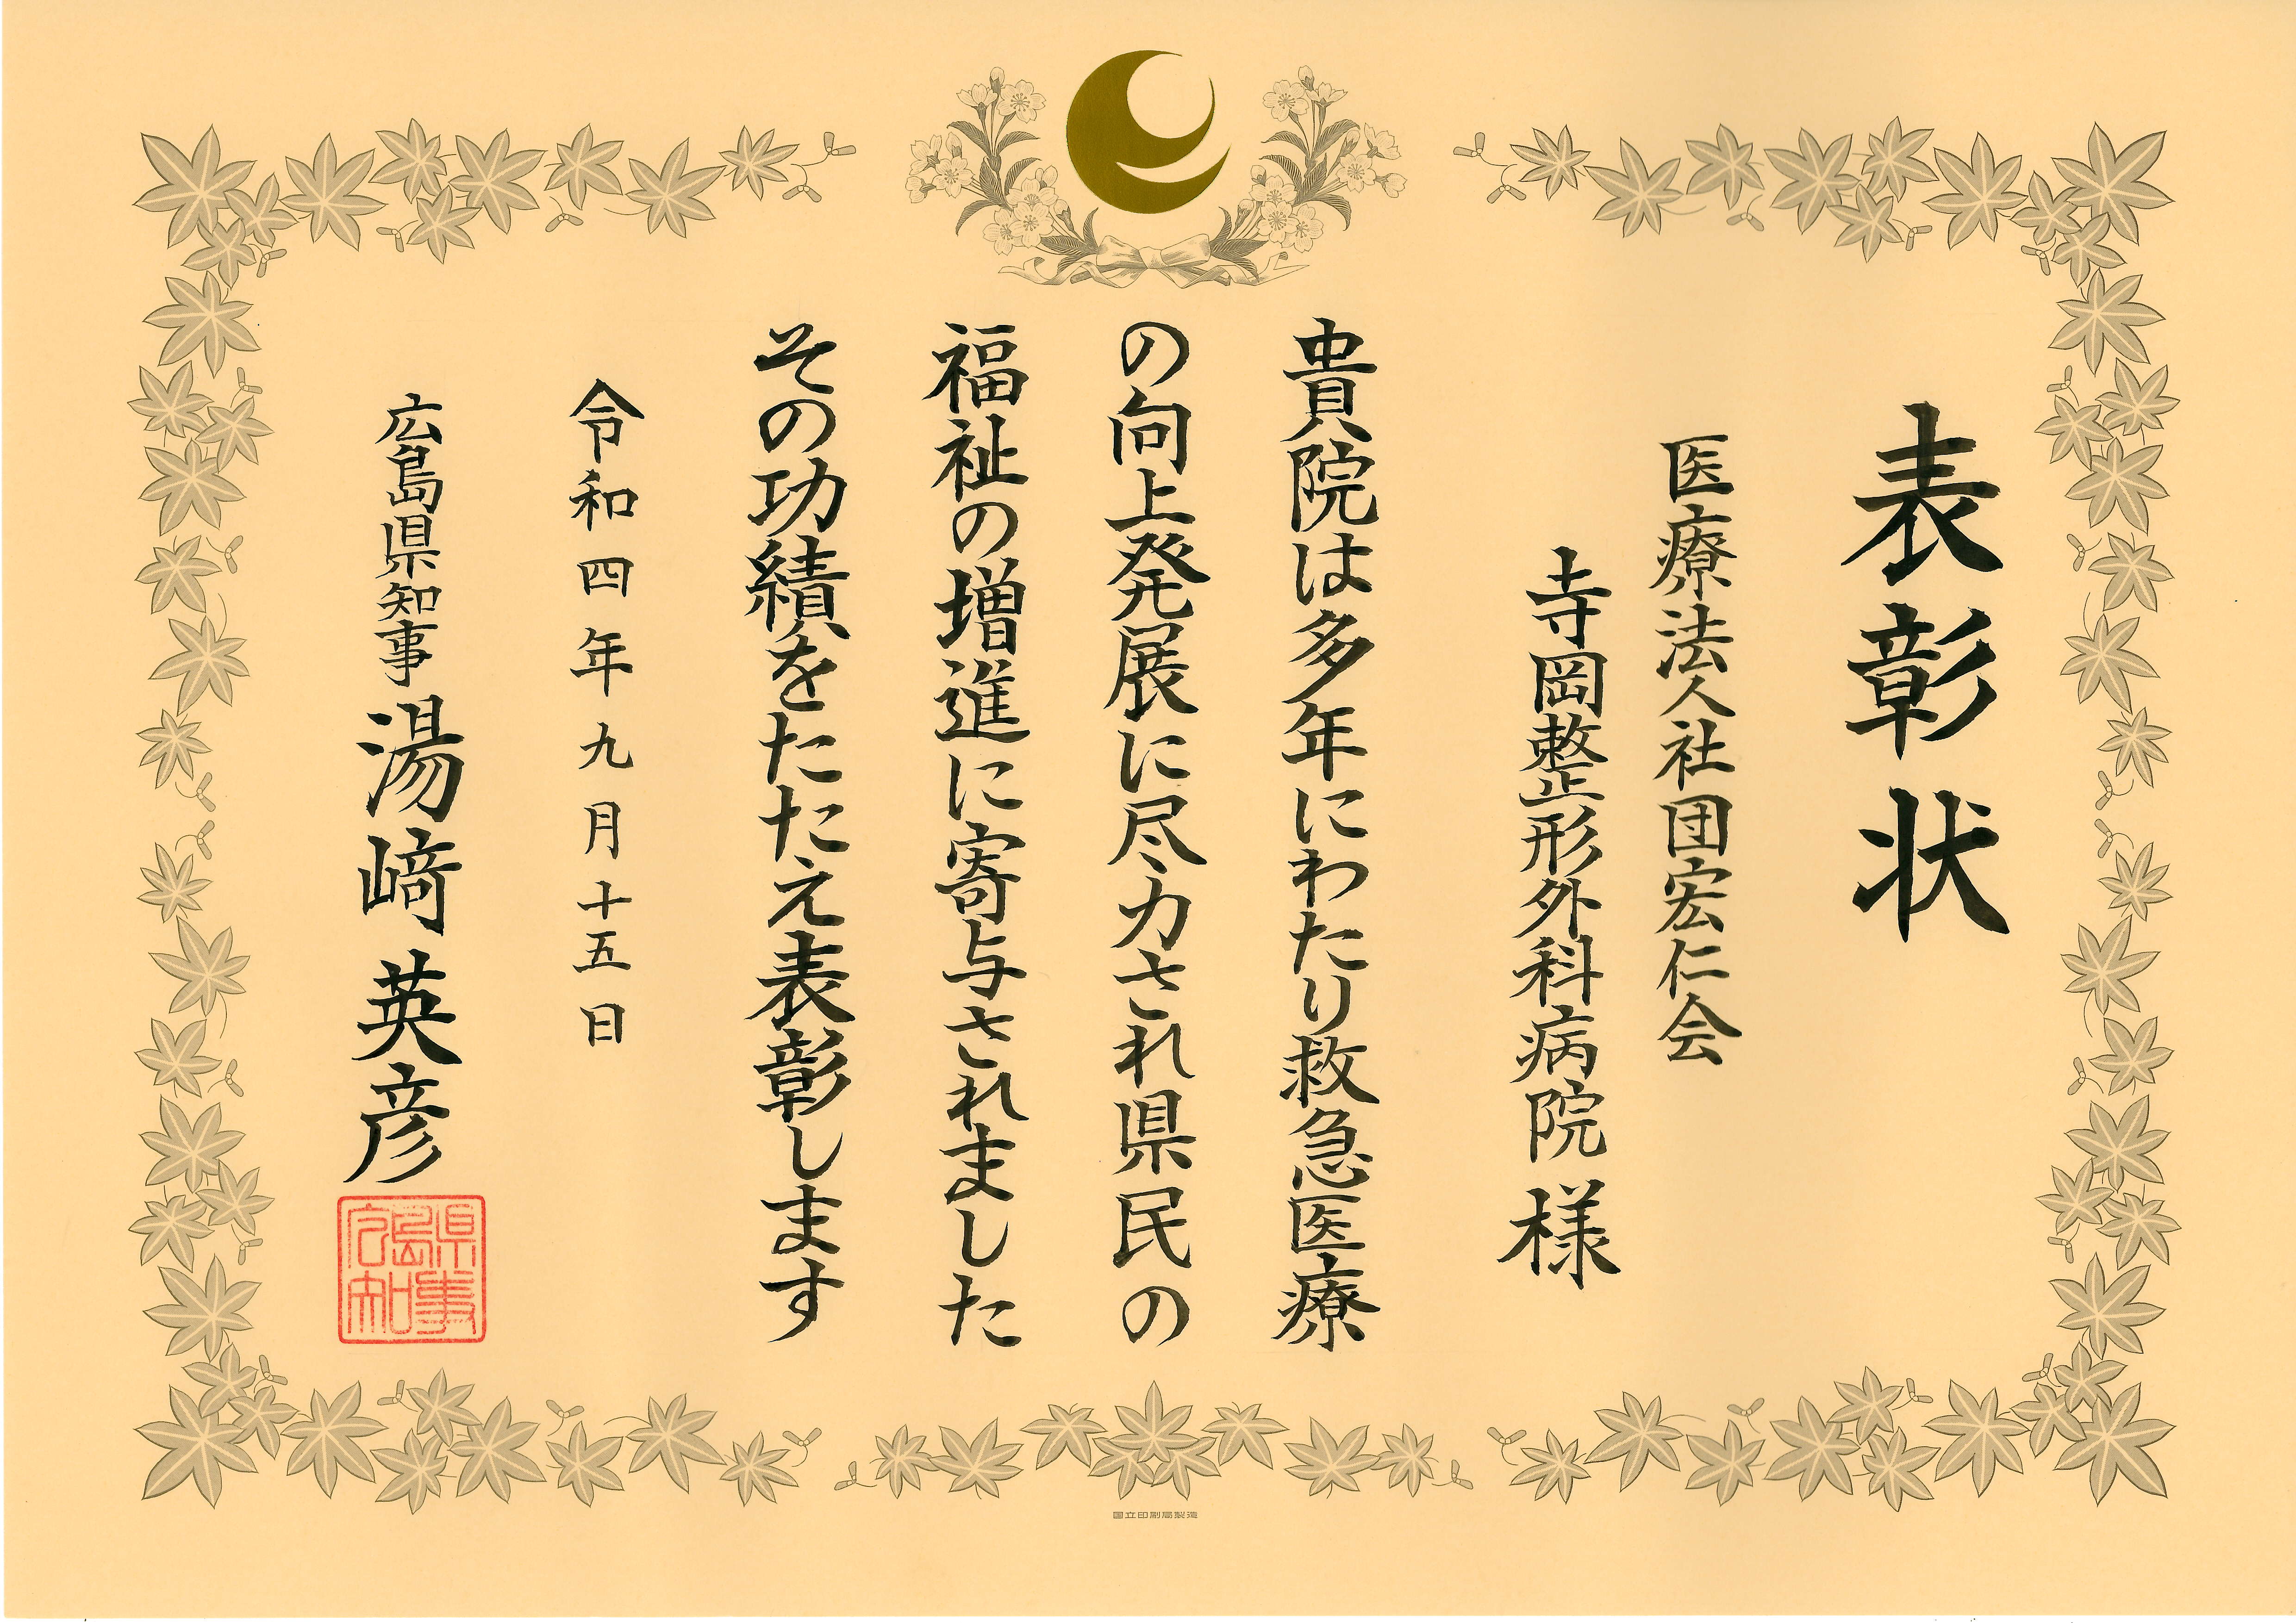 表彰状
医療法人社団宏仁会
寺岡整形外科病院様
貴院は多年にわたり救急医療
の向上発展に尽力され県民の
福祉の増進に寄与されました
その功績をたたえ表彰します
令和四年九月十五日
広島県知事 湯﨑英彦
県事
島知
広
国立印刷局製造